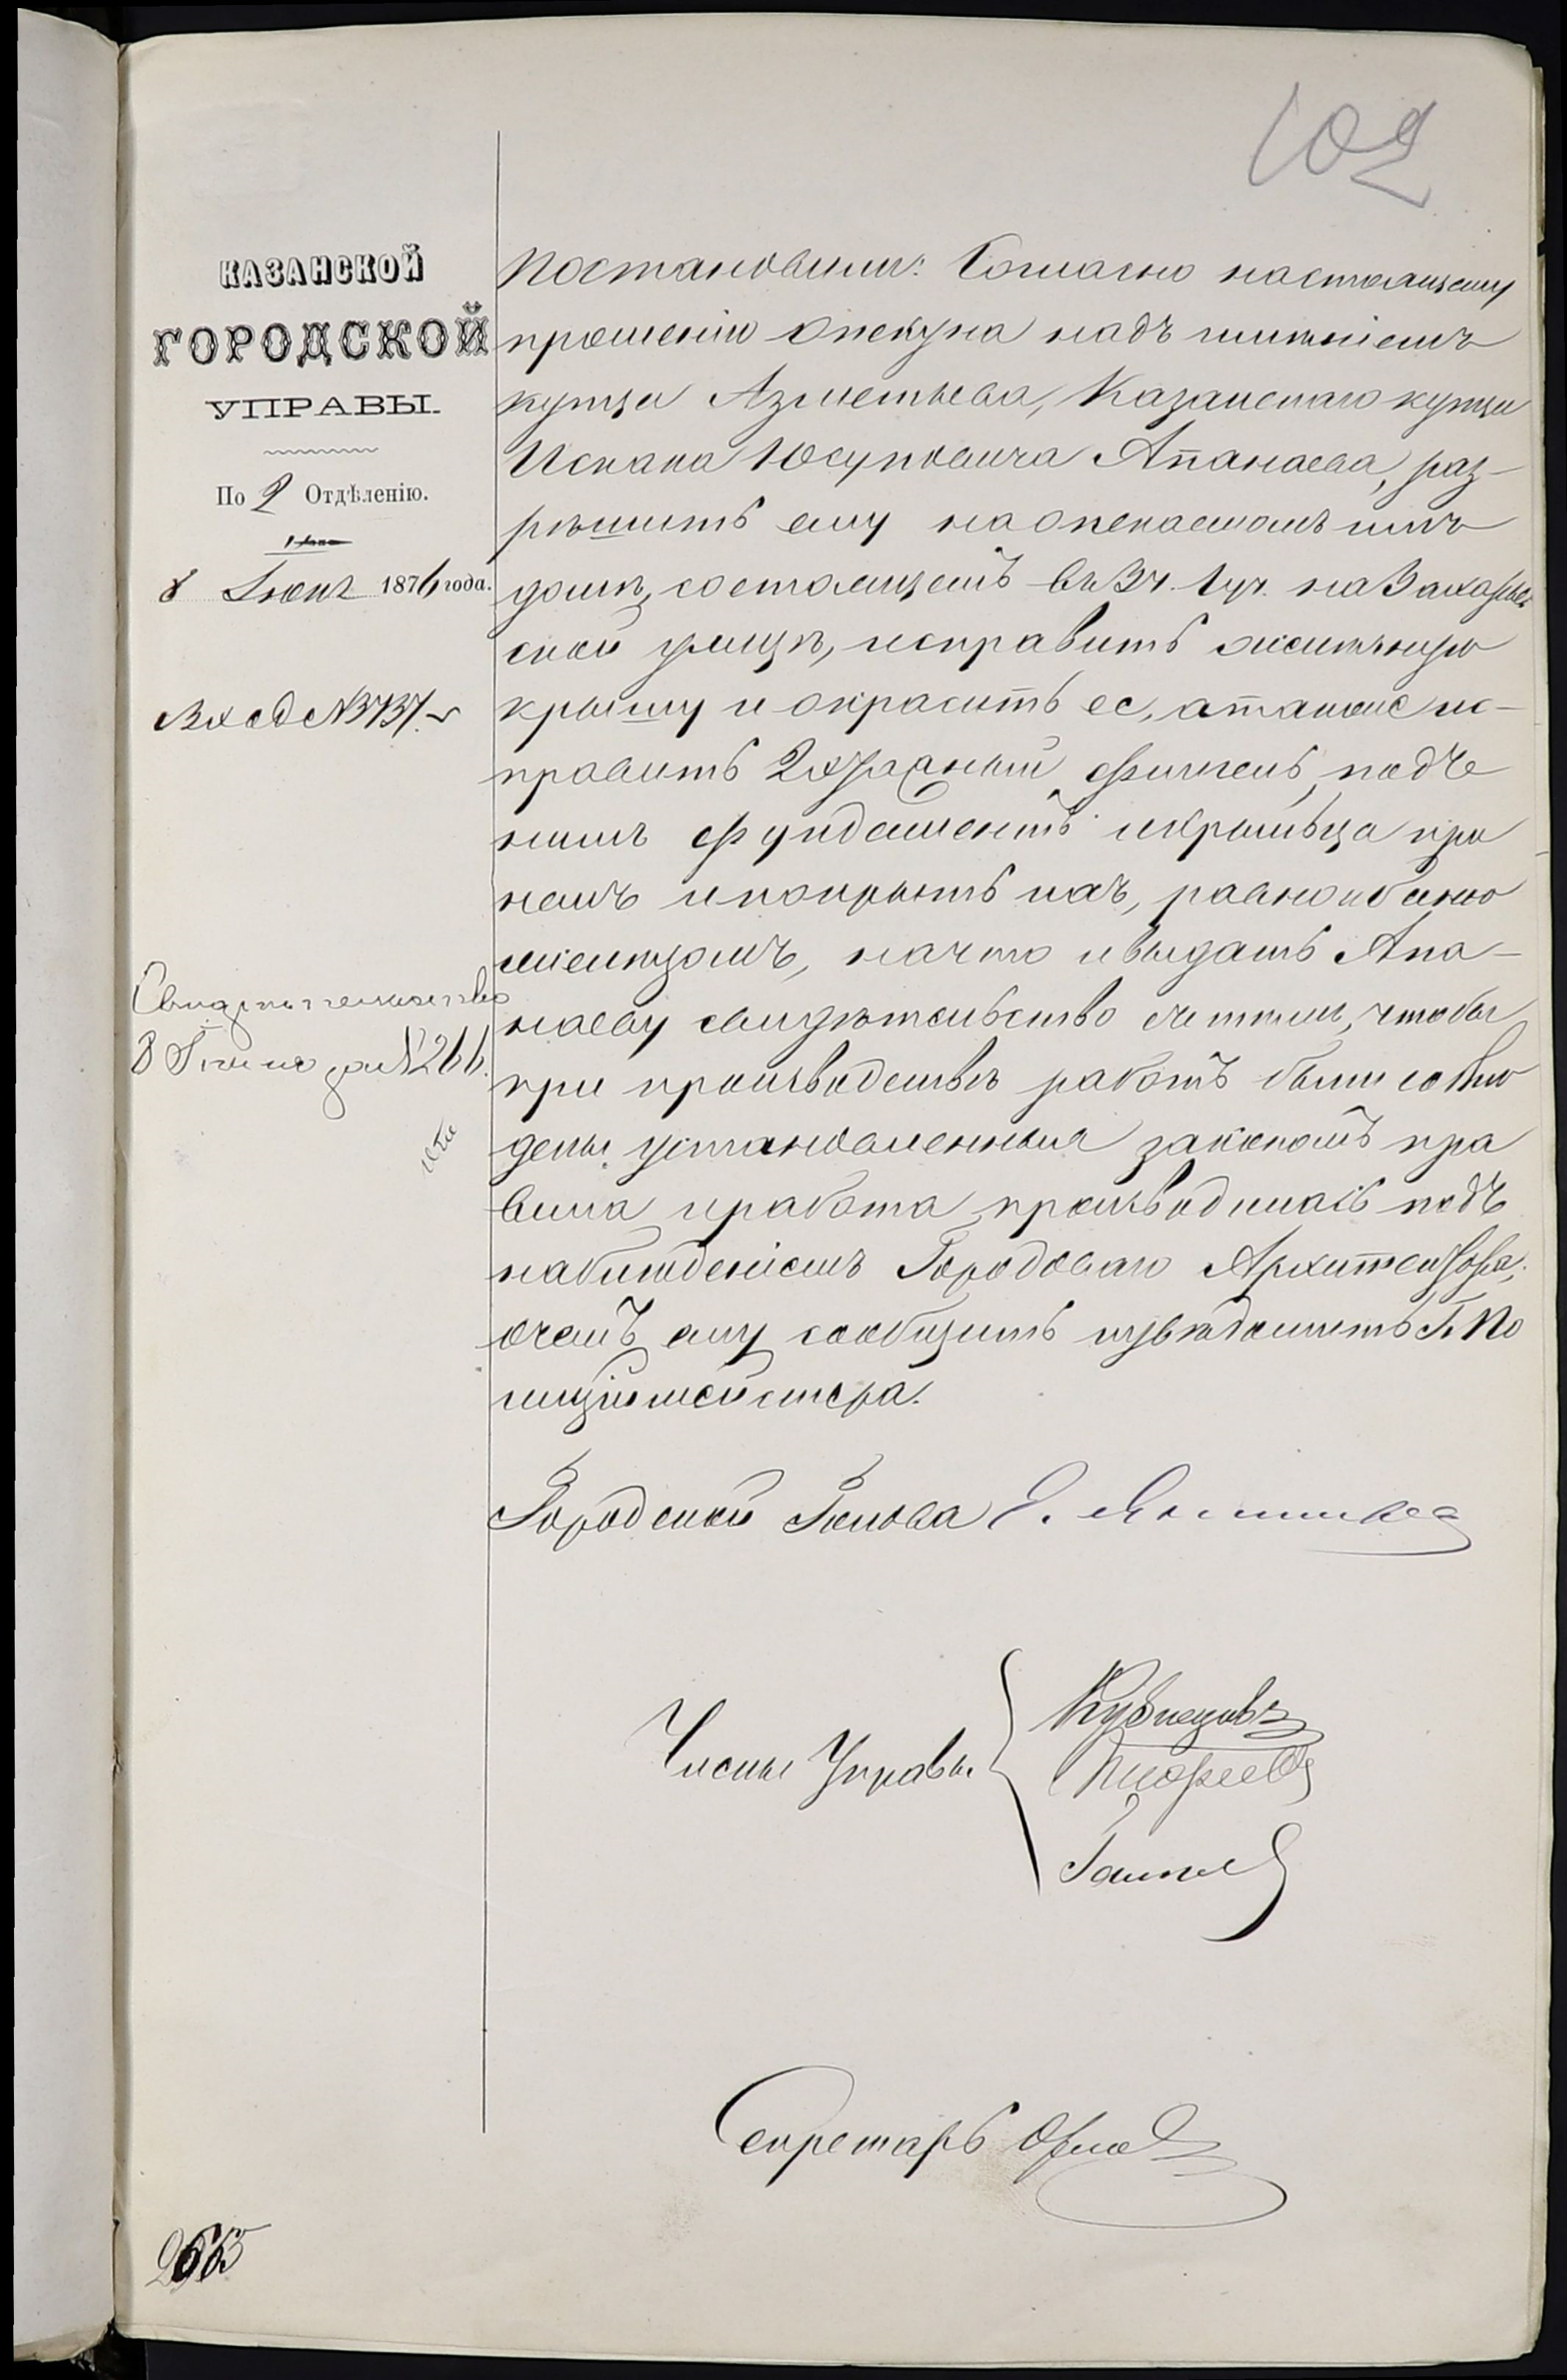 102
КАЗАНСКОЙ
ГОРОДСКОЙ
УПРАВЫ.
По 2 Отдѣленію.
8 Іюня 1876 года.
Вход №3737
Свидѣтельство
8 Іюня за №266.
Постановили: Согласно настоящему
прошенію опекуна надъ имѣніемъ
купца Азметьева, Казанскаго купца
Исхака Юсуповича Апанаева, раз-
рѣшить ему на опекаемомъ имъ
домѣ, состоящемъ въ 3ч. 1уч. на Захарьев
ской улицѣ, исправить желѣзную
крышу и окрасить ее, а также ис-
править 2хэтажный флигель, подъ
нимъ фундаментъ и крыльца при
немъ и покрыть ихъ, равно и баню
желѣзомъ, на что и выдать Апа-
наеву свидѣтельство съ тѣмъ, чтобы
при производствѣ работъ были соблю
дены установленныя закономъ пра
вила и работа производилась подъ
наблюденіемъ Городоваго Архитектора;
о чемъ ему сообщить и увѣдомить Г. По
лиціймейстера.
Городской Голова Э. Янишевс
Члены Управы
Кузнецовъ
Секретарь Орлов
265